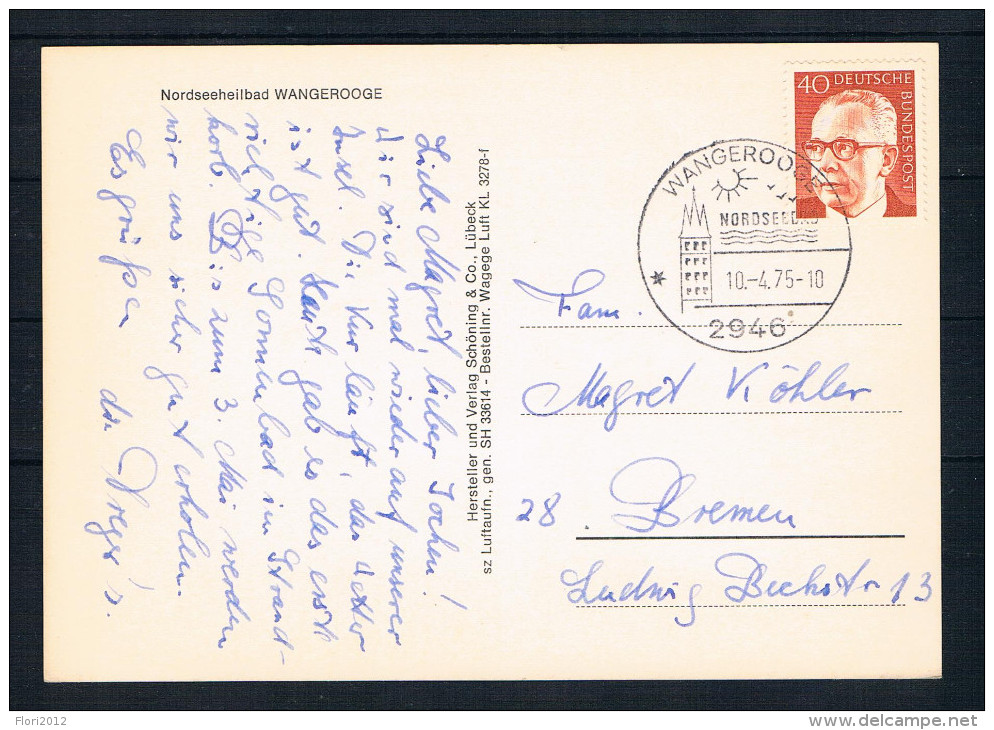 Nordseeheilbad WANGEROOGE
Liebe Magret, lieber Jochen!
Wir sind mal wieder auf unserer
Insel. Die Kur läuft, das Wetter
ist gut. Heute gab es das erste
richtige Sonnenbad im Strand-
korb. Bis zum 3. Mai werden
wir uns sicher gut erholen.
Es grüßen
die Dreger's.
Hersteller und Verlag Schöning & Co., Lübeck
sz Luftaufn., gen. SH 33614 - Bestellnr. Wagege Luft KL 3278-f
40 DEUTSCHE
BUNDESPOST
WANGEROOGE
NORDSEEBAD
10.-4.75-10
2946
Fam.
Magret Köhler
28 Bremen
Ludwig Beckstr 13
Flori2012
www.delcampe.net